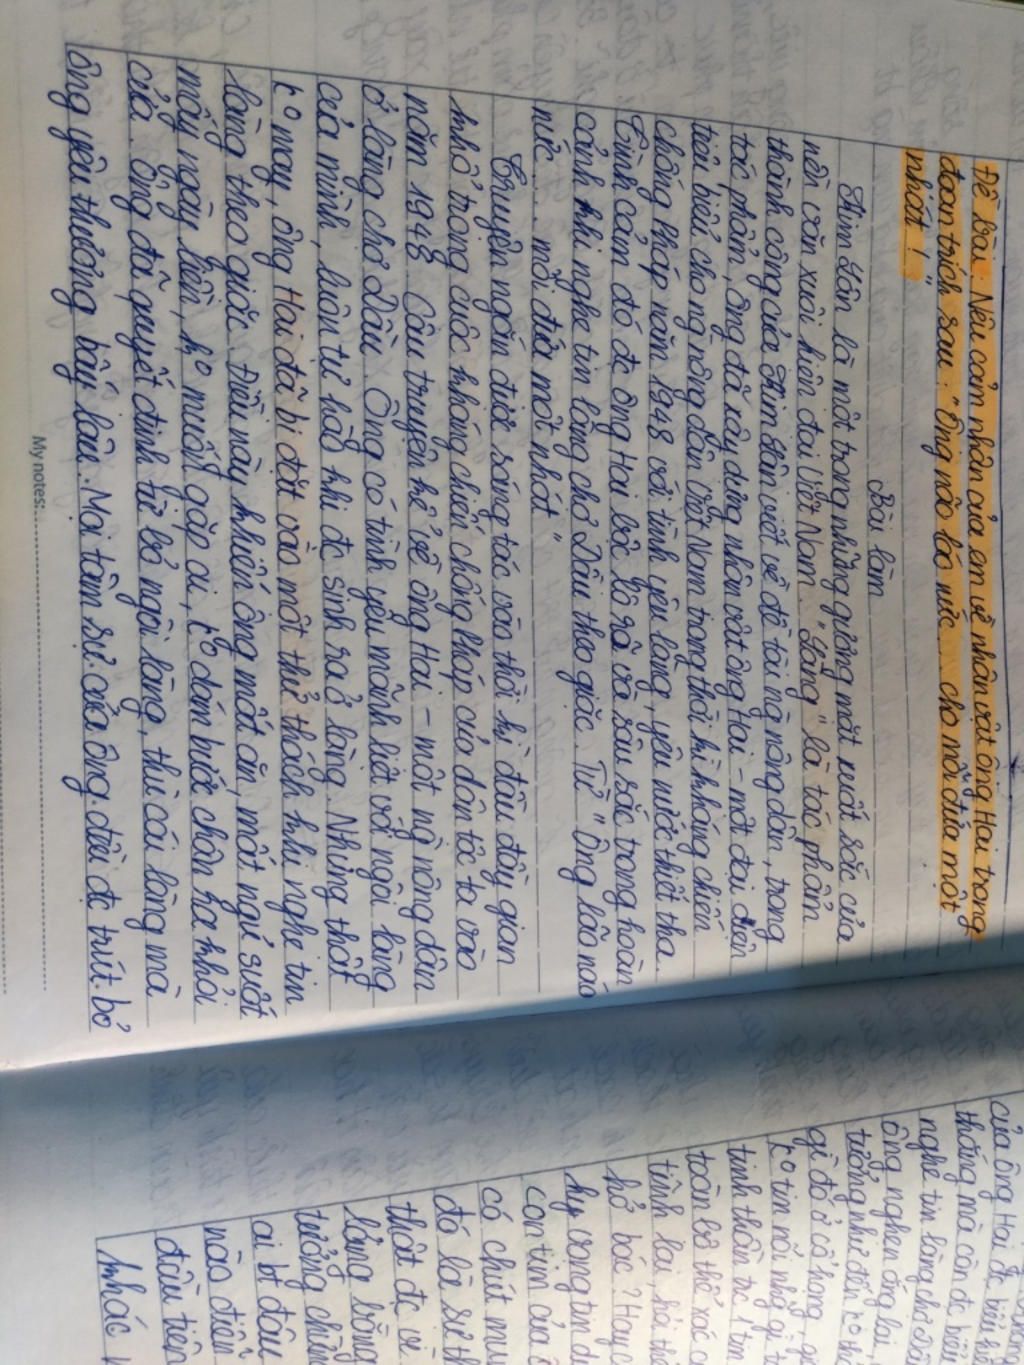 Đề bài: Nêu cảm nhận của em về nhân vật ông Hai trong
đoạn trích sau: "Ông lão náo nức... cho mỗi đứa một
nhát!"
Bài làm
Kim Lân là một trong những gương mặt xuất sắc của
nền văn xuôi hiện đại Việt Nam. "Làng" là tác phẩm
thành công của Kim Lân viết về đề tài ng nông dân, trong
tác phẩm, ông đã xây dựng nhân vật ông Hai - một đại diện
tiêu biểu cho ng nông dân Việt Nam trong thời kì kháng chiến
chống Pháp năm 1948 với tình yêu làng, yêu nước thiết tha.
Tình cảm đó đc ông Hai bộc lộ rõ và sâu sắc trong hoàn
cảnh khi nghe tin làng chợ Dầu theo giặc. Từ "Ông lão náo
nức... mỗi đứa một nhát"
Truyện ngắn được sáng tác vào thời kì đầu đầy gian
khổ trong cuộc kháng chiến chống Pháp của dân tộc ta vào
năm 1948. Câu truyện kể về ông Hai - một ng nông dân
ở làng chợ Dầu. Ông có tình yêu mãnh liệt với ngôi làng
của mình, luôn tự hào khi đc sinh ra ở làng. Nhưng thật
ko may, ông Hai đã bị đặt vào một thử thách khi nghe tin
làng theo giặc. Điều này khiến ông mất ăn, mất ngủ suốt
mấy ngày liền, ko muốn gặp ai, ko dám bước chân ra khỏi
cửa. Ông đã quyết định từ bỏ ngôi làng, thứ cái làng mà
ông yêu thương bấy lâu. Mọi tâm sự của ông đều đc trút bỏ
My notes:
của ông Hai đc biểu
thắng mà còn đc biểu
nghe tin làng chợ Dầu
ông nghẹn ắng lại,
tưởng như đến ko th
gì đó ở cổ họng, g
ko tin nổi những gì t
tinh thần trc 1 tin
toàn bộ thể xác
tĩnh lại, hỏi th
hở bác? Hay c
hy vọng tin d
con tim của
có chút mu
đó là sự th
thật đc v
làng bỗng
tưởng chừng
ai bt đâu
nào điên
đầu tiên
khác